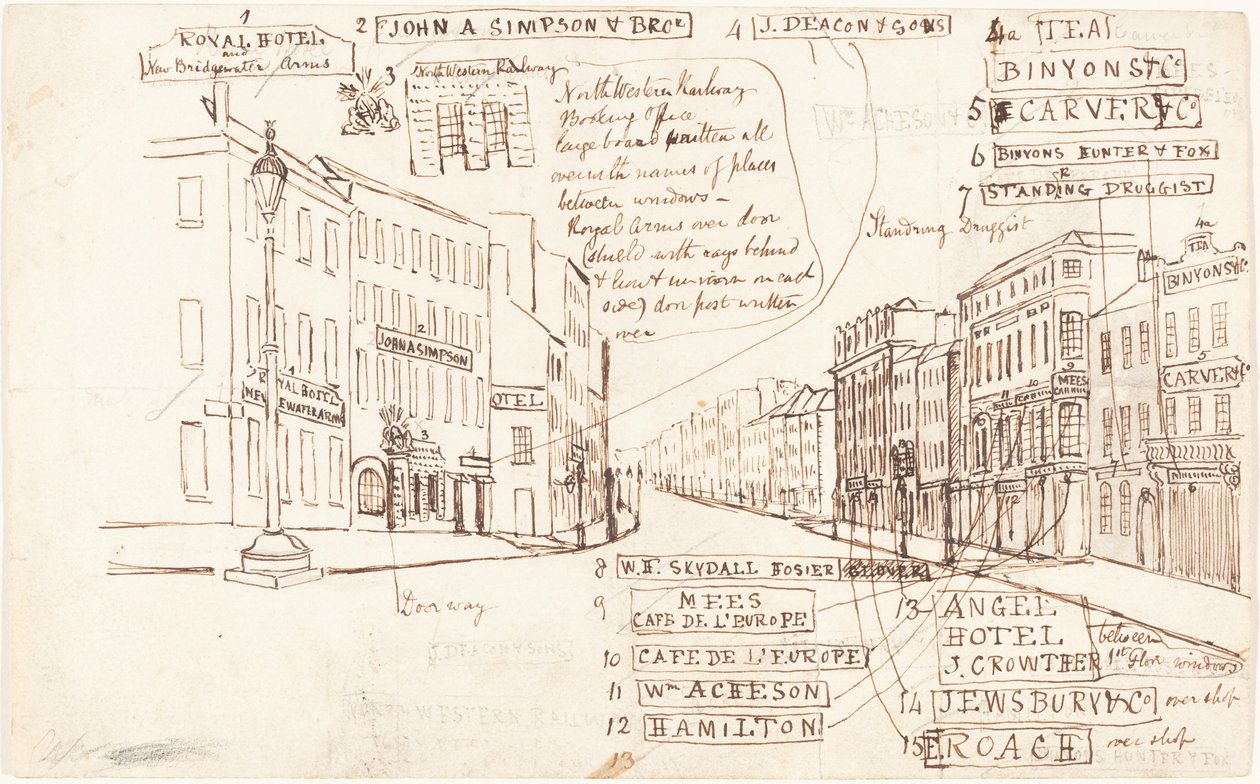 1
ROYAL HOTEL.
and
New Bridgewater Arms
2 JOHN A SIMPSON & BROR
3
North Western Railway
North Western Railway
Booking Office
large board written all
over with names of places
between windows –
Royal Arms over door
(shield with rays behind
& lion & unicorn on each
side) door post written
over
4 J. DEACON & SONS
4a TEA
BINYONS & Co
5 CARVER & Co
6 BINYONS HUNTER & FOX
7 STANDRING DRUGGIST
Standring Druggist
4a
TEA
BINYONS & Co
5
CARVER & Co
6
7
8
9
MEES
10
11
12
13
14
15
2
JOHN A SIMPSON
1
ROYAL HOTEL
NEW
EWATER ARMS
3
OTEL
Door way
8 W. H. SKYDALL HOSIER GLOVER
9 MEES
CAFE DE L'EUROPE
10 CAFE DE L'EUROPE
11 Wm ACHESON
12 HAMILTON
13 ANGEL
HOTEL
J. CROWTHER
between
1st Floor windows
14 JEWSBURY & Co over shop
15 E. ROACH over shop
J. DEACON & SONS
Wm ACHESON
13